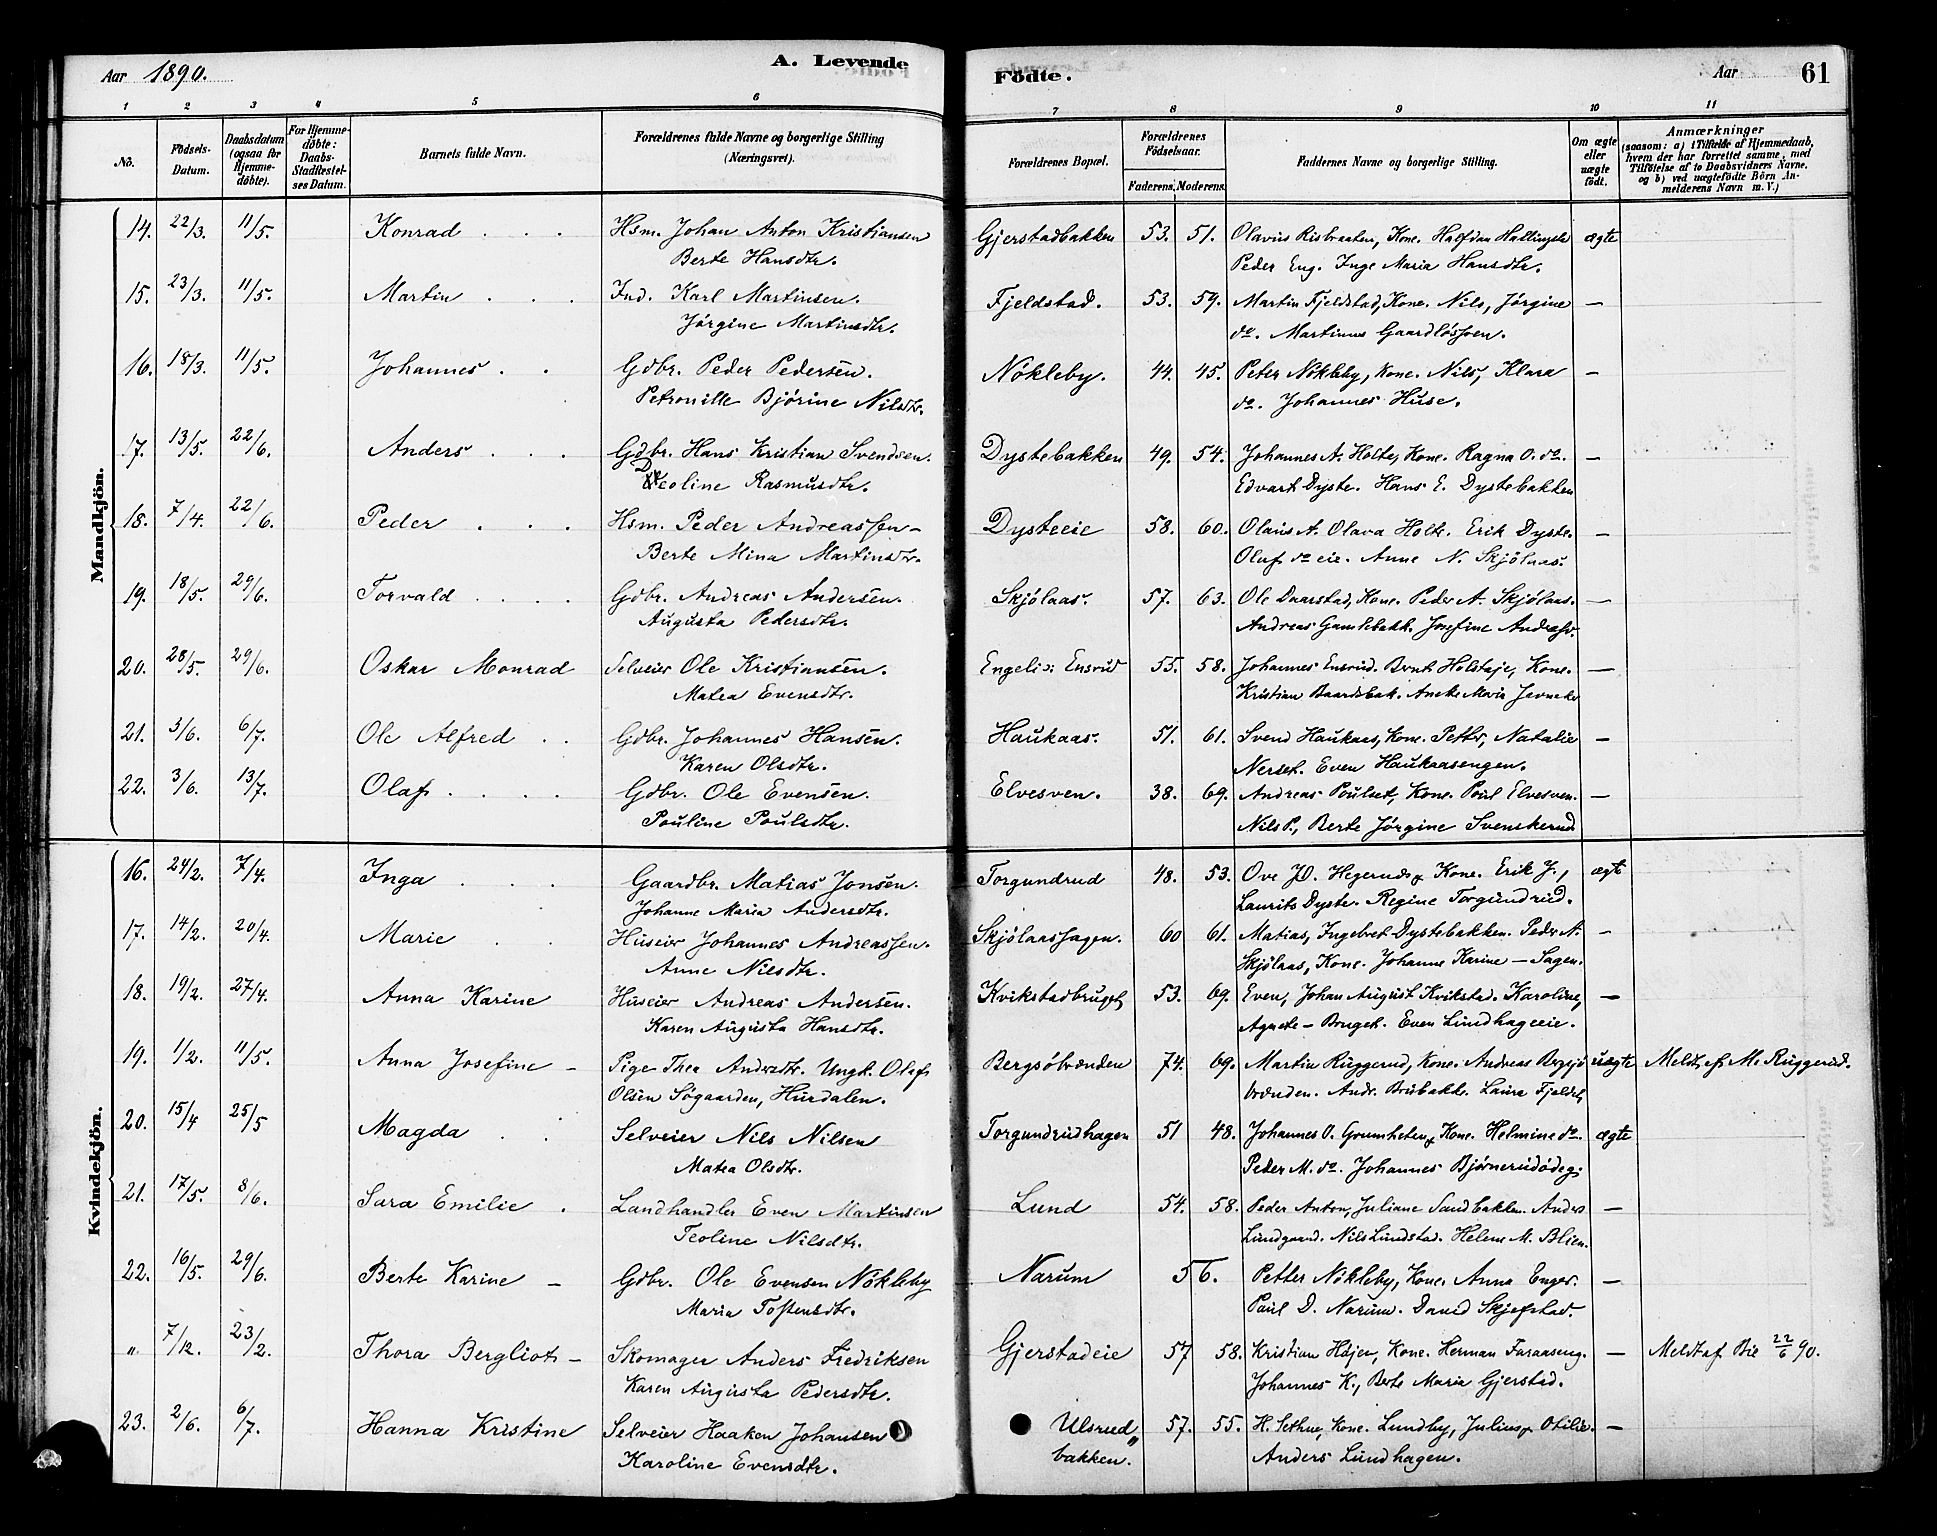 Aar 1890. A. Levende
Födte. Aar 61
1 2 3 4 5 6 7 8 9 10 11
No. Födsels-Datum. Daabsdatum (ogsaa for Hjemme-döbte). For Hjemme-döbte: Daabs-Stadfæstel-ses Datum. Barnets fulde Navn. Forældrenes fulde Navne og borgerlige Stilling (Næringsvei). Forældrenes Bopæl. Forældrenes Födselsaar. Faderens. Moderens. Faddernes Navne og borgerlige Stilling. Om ægte eller uægte födt. Anmærkninger (saasom: a) i Tilfælde af Hjemmedaab, hvem der har forrettet samme, med Tilföielse af to Daabsvidners Navne, og b) ved uægtefödte Börn An-melderens Navn m. V.)
Mandkjön.
14. 22/3. 11/5. Konrad Hsm. Johan Anton Kristiansen Gjerstadbakken 53. 51. Olavus Risbraaten, Kone. Halfdan Hallingsta ægte
Berte Hansdtr. Peder Eng. Inge Maria Hansdtr.
15. 23/3. 11/5. Martin Ind. Karl Martinsen. Fjeldstad. 53. 59. Martin Fjeldstad, Kone. Nils, Jörgine —
Jörgine Martinsdtr. do. Martinus Gaardlössven.
16. 18/3. 11/5. Johannes Gdbr. Peder Pedersen. Nökleby. 44. 45. Peter Nökleby, Kone. Nils, Klara —
Petronille Björine Nilsdtr. do. Johannes Huse.
17. 13/5. 22/6. Anders Gdbr. Hans Kristian Svendsen. Dystebakken 49. 54. Johannes A. Holte, Kone. Ragna O. do. —
Nicoline Rasmusdtr. Edvart Dyste. Hans E. Dystebakken
18. 7/4. 22/6. Peder Hsm. Peder Andreassen — Dysteeie 58. 60. Olaus A. Olava Holte. Erik Dyste. —
Berte Mina Martinsdtr. Oluf do eie. Anne N. Skjölaas.
19. 18/5. 29/6. Torvald Gdbr. Andreas Andersen. Skjölaas. 57. 63. Ole Daarstad, Kone. Peder A. Skjölaas. —
Augusta Pedersdtr. Andreas Gamlebakk. Josefine
20. 28/5. 29/6. Oskar Monrad Selveier Ole Kristiansen. Engeli: Ensrud 55. 58. Johannes Ensrud. Bernt Holstøje, Kone. —
Matea Evensdtr. Kristian Baardsbak. Anne Maria
21. 3/6. 6/7. Ole Alfred Gdbr. Johannes Hansen. Haukaas. 51. 61. Svend Haukaas, Kone. Petter, Natalie —
Karen Olsdtr. Nerset. Even Haukaasengen.
22. 3/6. 13/7. Olaf Gdbr. Ole Evensen. Elvesven. 38. 69. Andreas Poulset, Kone. Poul Elvesven. —
Pouline Poulsdtr. Nils P., Berte Jörgine Svenskerud
Kvindekjön.
16. 24/2. 7/4. Inga Gaardbr. Matias Jonsen. Torgundrud 48. 53. Ove Hegerud, Kone. Erik J., ægte
Johanne Maria Andersdtr. Laurits Dyste. Regine Torgundrud.
17. 14/2. 20/4. Marie Huseier Johannes Andreassen. Skjölaassagen. 60 61. Matias, Ingebret Dystebakken. Peder A. —
Anne Nilsdtr. Skjölaas, Kone. Johanne Karine — Sagen.
18. 19/2. 27/4. Anna Karine Huseier Andreas Andersen. Kvikstadbruget, 53. 69. Even, Johan August Kvikstad. Karoline, —
Karen Augusta Hansdtr. Agnete — Bruget. Even Lundhageeie.
19. 1/2. 11/5. Anna Josefine — Pige Thea Andersdtr. Ungk. Olaf Bergsöbrönden 74. 69. Martin Ruggerud, Kone. Andreas Bergsjö uægte Meldt af M. Ruggerud.
Olsen Sögaarden, Hurdalen. brønden. Andr. Brubakk. Laura Fjeldst,
20. 15/4 25/5 Magda Selveier Nils Nilsen Torgundrudhagen 51 48. Johannes O. Grumheten, Kone. Helmine do. ægte
Matea Olsdtr. Peder M. do. Johannes Björnerudödeg:
21. 17/5. 8/6. Sara Emilie Landhandler Even Martinsen Lund 54. 58. Peder Anton, Juliane Sandbakken. Anders —
Teoline Nilsdtr. Lundgaard. Nils Lundstad. Helene M. Blien.
22. 16/5. 29/6. Berte Karine — Gdbr. Ole Evensen Nökleby Narum 56. Petter Nökleby, Kone. Anna Enger. —
Maria Tostensdtr. Paul D. Narum. David Skjefstad.
" 7/12. 23/2. Thora Bergliot — Skomager Anders Fredriksen Gjerstadeie 57 58. Kristian Höjer, Kone. Herman Faraaseng. — Meldt af Bie 22/6 90.
Karen Augusta Pedersdtr. Johannes K., Berte Maria Gjerstad.
23. 2/6. 6/7. Hanna Kristine Selveier Haaken Johansen Ulsrud„ 57. 55. H. Sethne, Kone. Lundby, Julius, Otilie. —
Karoline Evensdtr. bakken. Anders Lundhagen.